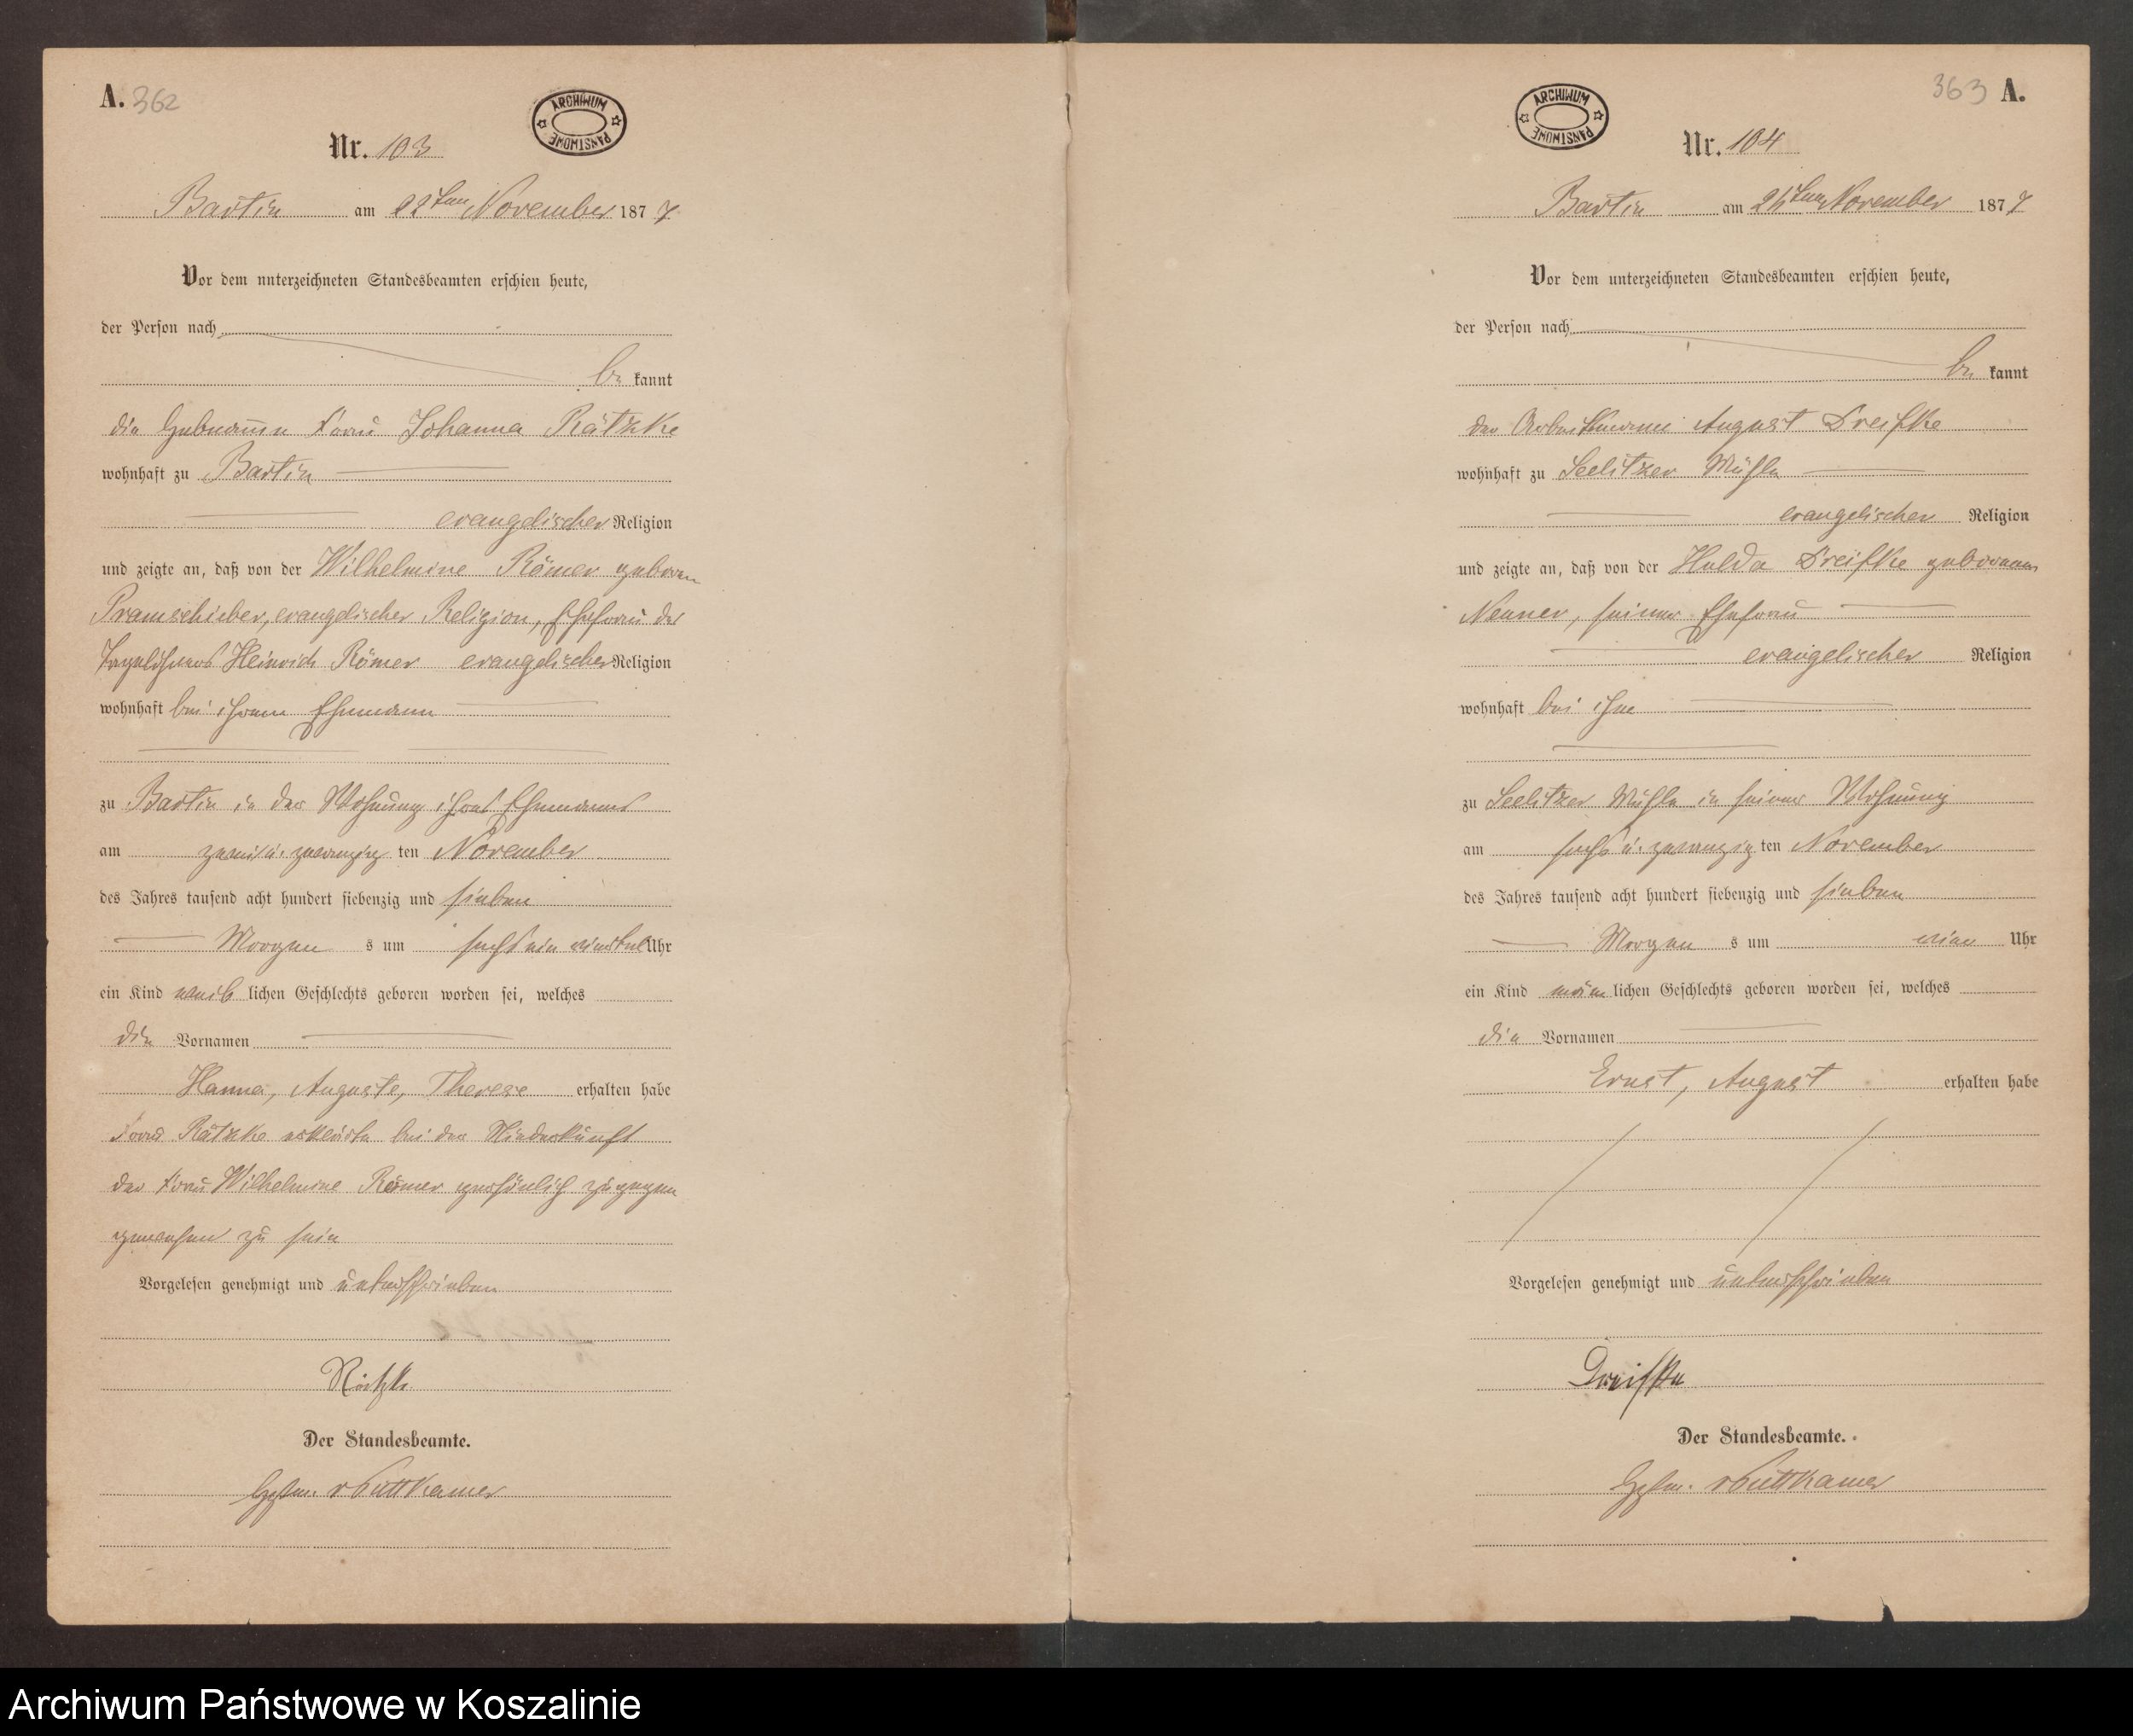 A. 362
ARCHIWUM PAŃSTWOWE
Nr. 103
Bartin am 22ten November 1877
Vor dem unterzeichneten Standesbeamten erschien heute,
der Person nach
be kannt
die Hebamme Frau Johanna Rätzke
wohnhaft zu Bartin
evangelischer Religion
und zeigte an, daß von der Wilhelmine Römer geboren
Pramschieber, evangelischer Religion, Ehefrau des
Tagelöhners Heinrich Römer evangelischer Religion
wohnhaft bei ihrem Ehemann
zu Bartin in der Wohnung ihres Ehemanns
am zwei u. zwanzig ten November
des Jahres tausend acht hundert siebenzig und sieben
Morgen s um sechs ein viertel Uhr
ein Kind weib lichen Geschlechts geboren worden sei, welches
die Vornamen
Hanna, Auguste, Therese erhalten habe
Frau Rätzke erklärte bei der Niederkunft
der Frau Wilhelmine Römer persönlich zugegen
gewesen zu sein
Vorgelesen genehmigt und unterschrieben
Rätzke
Der Standesbeamte.
vPuttkamer
363 A.
ARCHIWUM PAŃSTWOWE
Nr. 104
Bartin am 26ten November 1877
Vor dem unterzeichneten Standesbeamten erschien heute,
der Person nach
be kannt
der Arbeitsmann August Dreifke
wohnhaft zu Seelitzer Mühle
evangelischer Religion
und zeigte an, daß von der Hulda Dreifke geborenen
Neuner, seiner Ehefrau
evangelischer Religion
wohnhaft bei ihm
zu Seelitzer Mühle in seiner Wohnung
am sechs u. zwanzig ten November
des Jahres tausend acht hundert siebenzig und sieben
Morgen s um vier Uhr
ein Kind männ lichen Geschlechts geboren worden sei, welches
die Vornamen
Ernst, August erhalten habe
Vorgelesen genehmigt und unterschrieben
Dreifke
Der Standesbeamte.
vPuttkamer
Archiwum Państwowe w Koszalinie